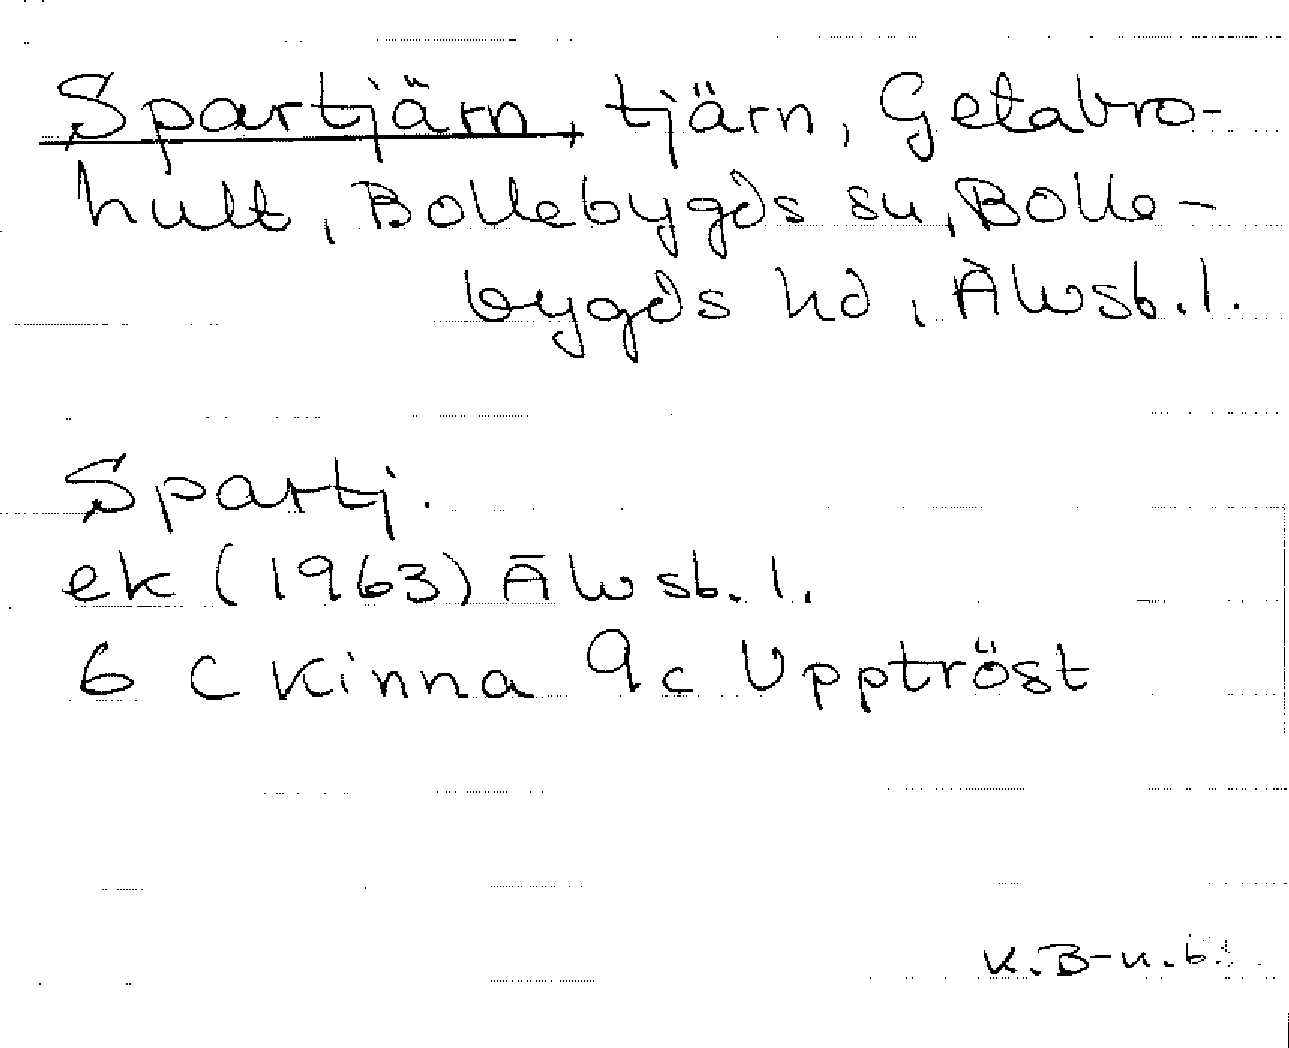 Spartjärn, tjärn, Getabro-
hult, Bollebygds sn, Bolle-
bygds hd, Älvsb. l.
Spartj.
ek (1963) Älvsb. l.
6 C Kinna 9c Upptröst
K.B-n.